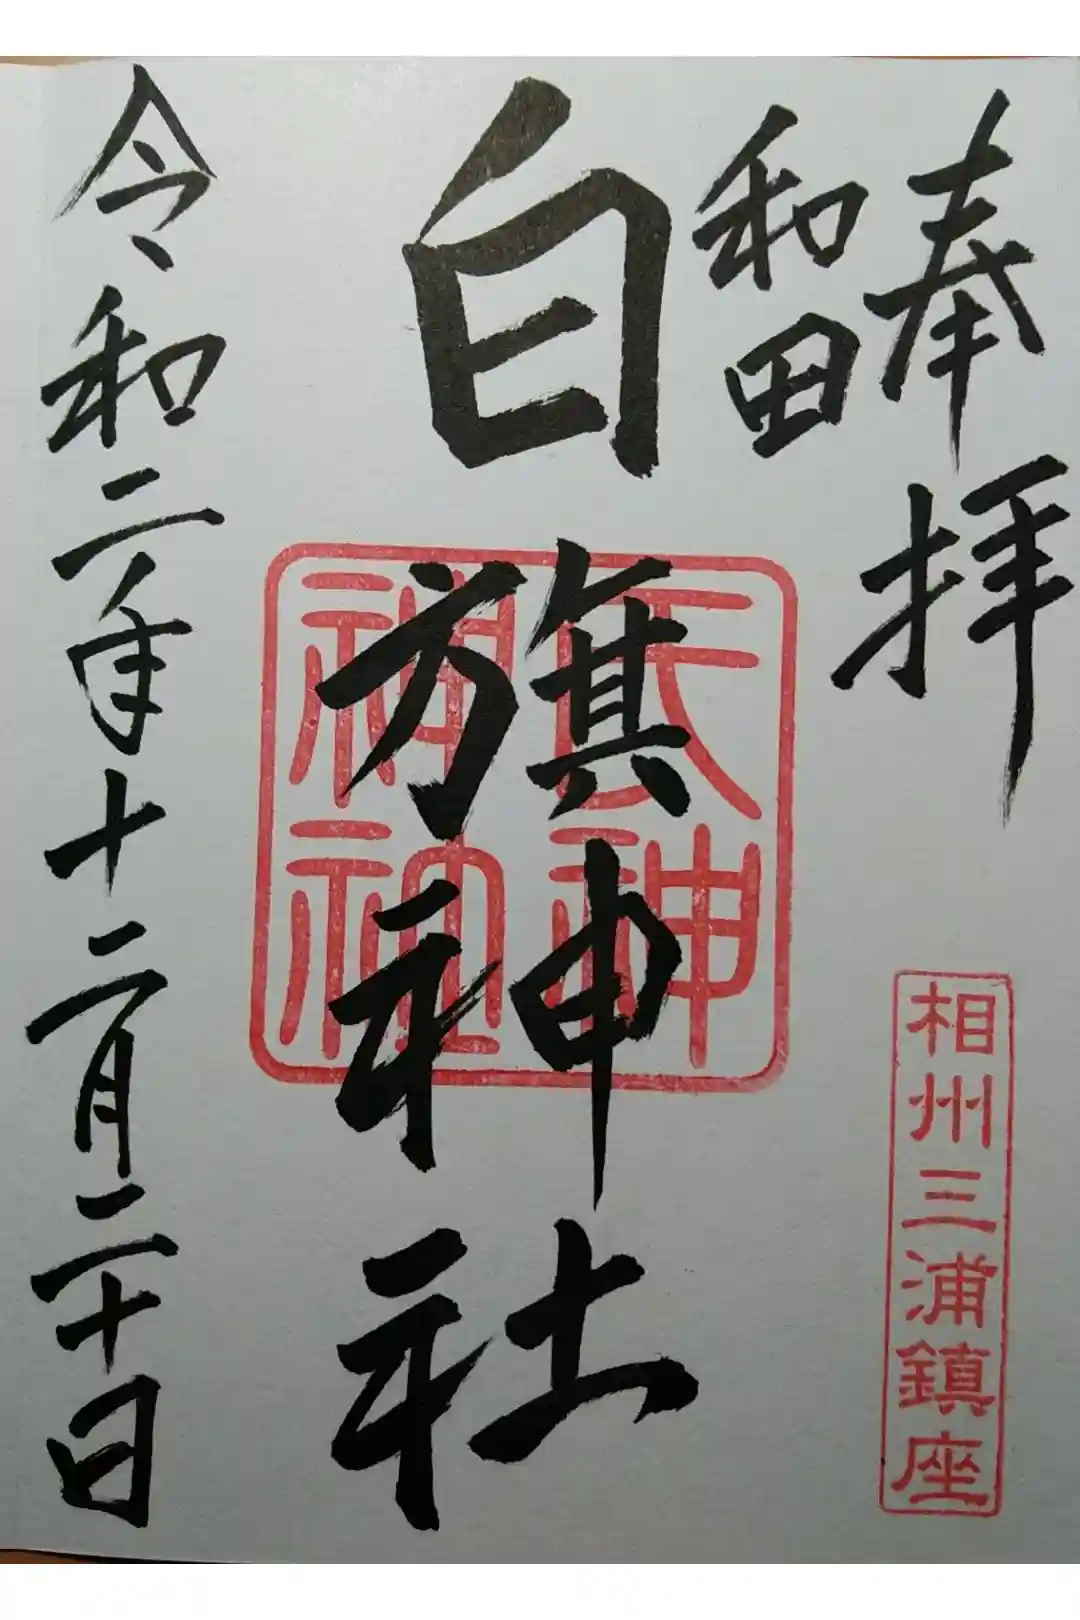 奉拝
相州三浦鎮座
和田
白旗神社
氏神
神社
令和二年十二月二十日